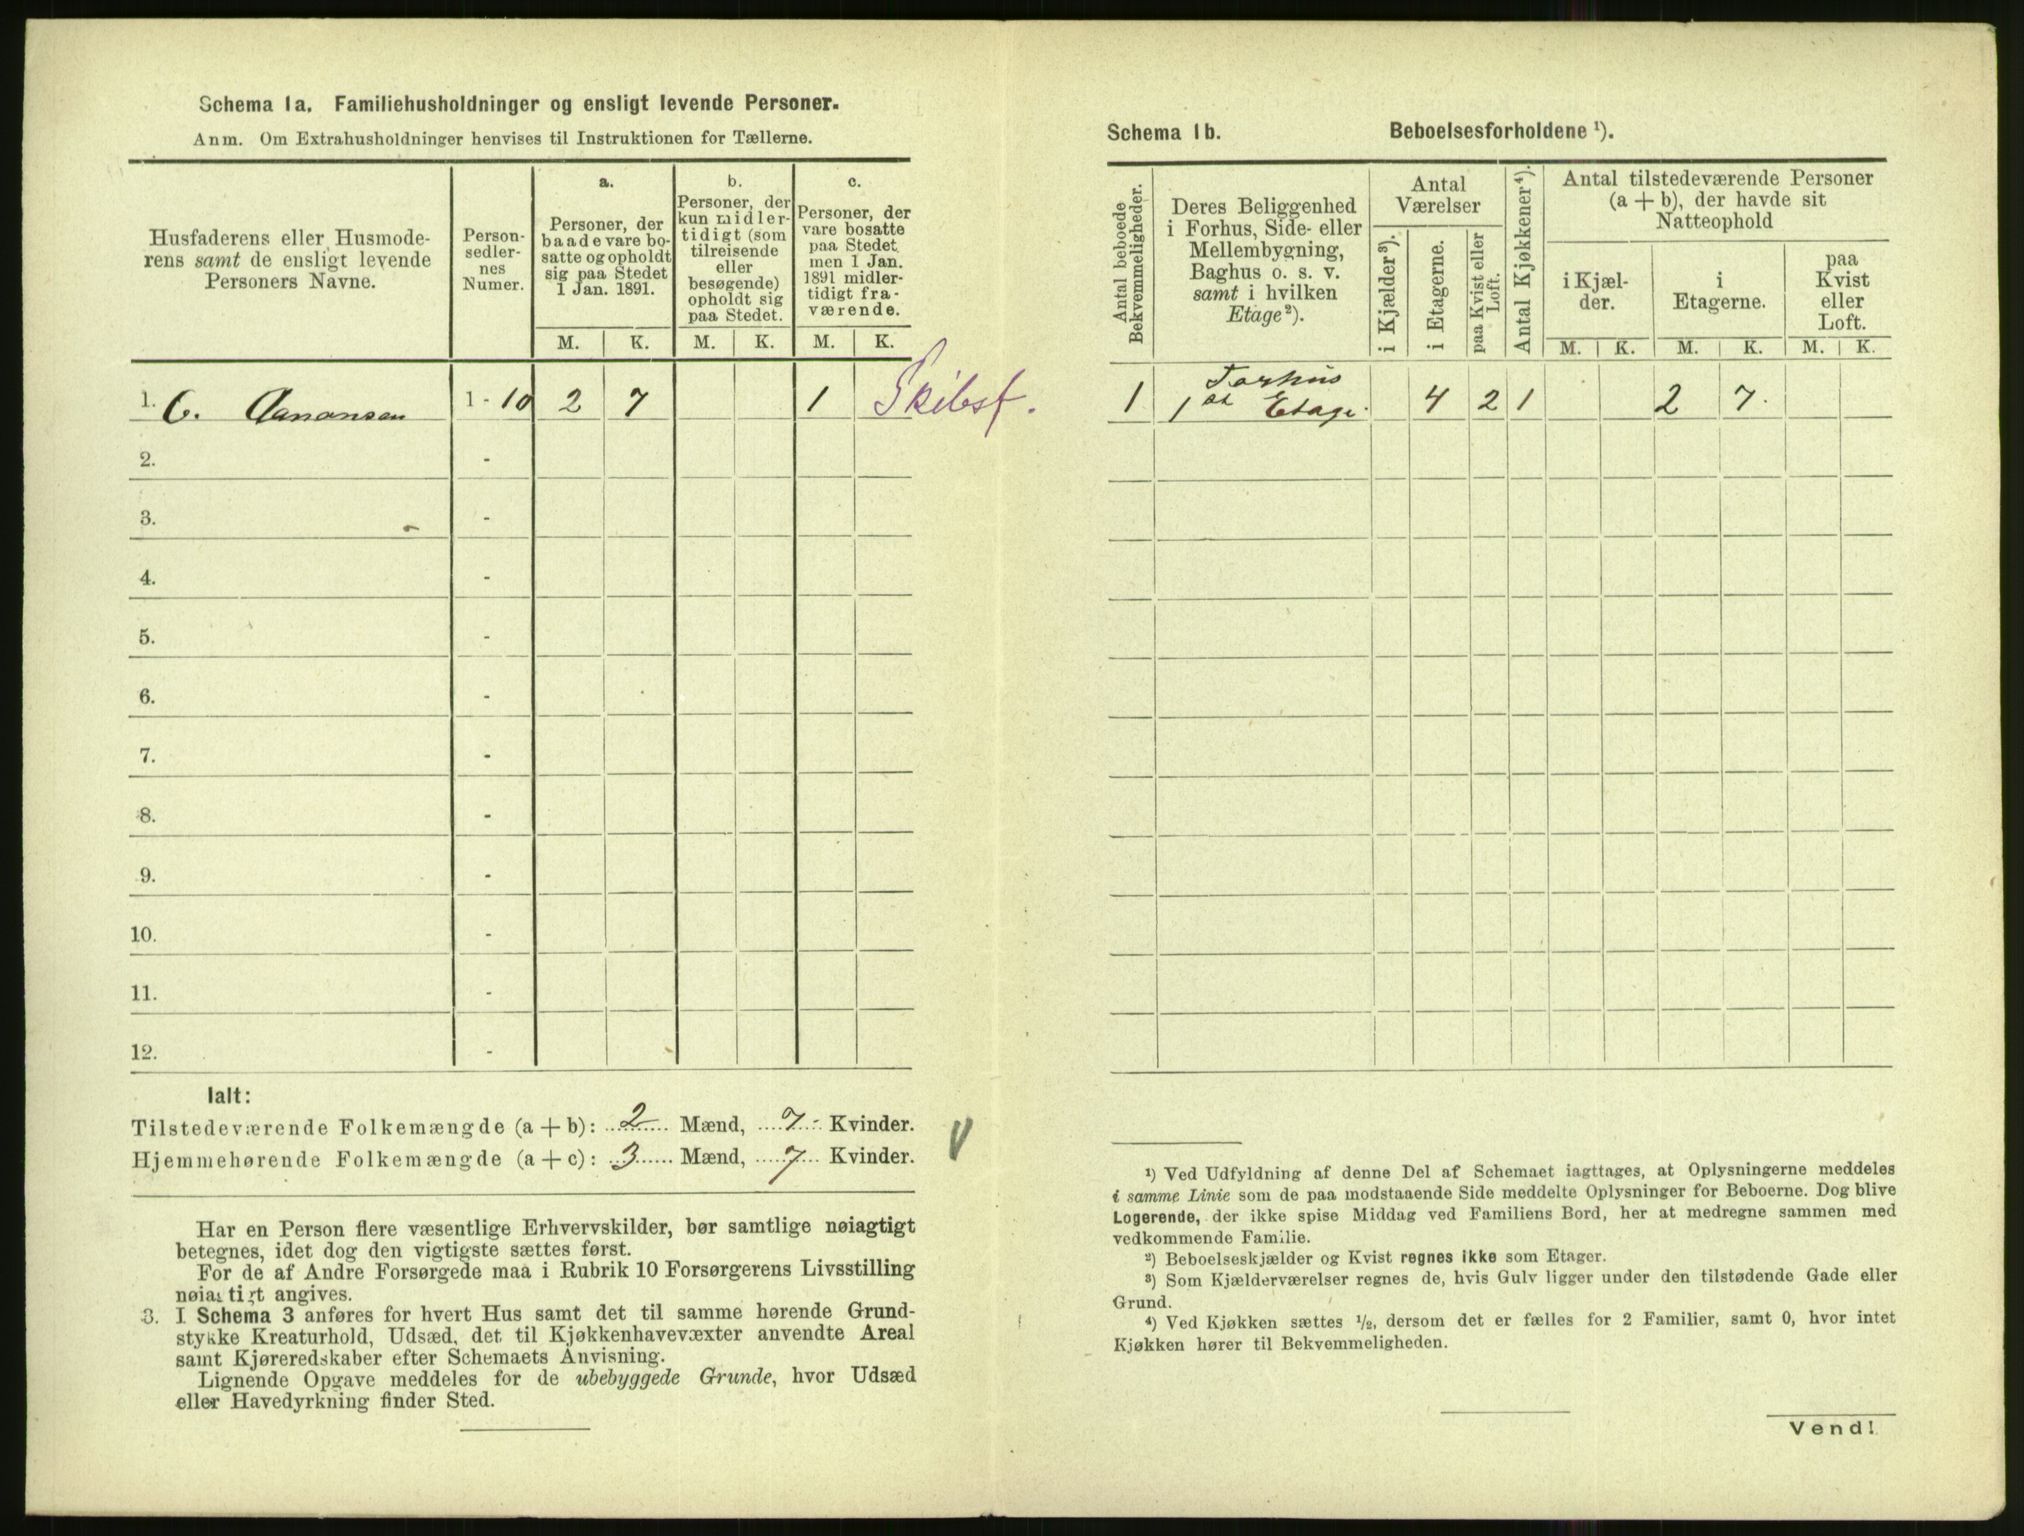 Schema 1a. Familiehusholdninger og ensligt levende Personer.
Anm. Om Extrahusholdninger henvises til Instruktionen for Tællerne.
Husfaderens eller Husmode-
rens samt de ensligt levende
Personers Navne.
Person-
sedler-
nes
Numer.
a.
Personer, der
baade vare bo-
satte og opholdt
sig paa Stedet
1 Jan. 1891.
b.
Personer, der
kun midler-
tidigt (som
tilreisende
eller
besøgende)
opholdt sig
paa Stedet.
c.
Personer, der
vare bosatte
paa Stedet
men 1 Jan.
1891 midler-
tidigt fra-
værende.
M. K. M. K. M. K.
1. C. Aanonsen 1 - 10 2 7 1 Skibsf.
2. -
3. -
4. -
5. -
6. -
7. -
8. -
9. -
10. -
11. -
12. -
Ialt:
Tilstedeværende Folkemængde (a + b): 2 Mænd, 7 Kvinder.
Hjemmehørende Folkemængde (a + c): 3 Mænd, 7 Kvinder.
Har en Person flere væsentlige Erhvervskilder, bør samtlige nøiagtigt
betegnes, idet dog den vigtigste sættes først.
For de af Andre Forsørgede maa i Rubrik 10 Forsørgerens Livsstilling
nøiagtigt angives.
3. I Schema 3 anføres for hvert Hus samt det til samme hørende Grund-
stykke Kreaturhold, Udsæd, det til Kjøkkenhavevæxter anvendte Areal
samt Kjøreredskaber efter Schemaets Anvisning.
Lignende Opgave meddeles for de ubebyggede Grunde, hvor Udsæd
eller Havedyrkning finder Sted.
Schema 1b. Beboelsesforholdene ¹).
Antal beboede
Bekvemmeligheder.
Deres Beliggenhed
i Forhus, Side- eller
Mellembygning,
Baghus o. s. v.
samt i hvilken
Etage²).
Antal
Værelser
i Kjælder³).
i Etagerne.
paa Kvist eller
Loft.
Antal Kjøkkener⁴).
Antal tilstedeværende Personer
(a + b), der havde sit
Natteophold
i Kjæl-
der.
i
Etagerne.
paa
Kvist
eller
Loft.
M. K. M. K. M. K.
1 Forhus
1st Etage. 4 2 1 2 7.
¹) Ved Udfyldning af denne Del af Schemaet iagttages, at Oplysningerne meddeles
i samme Linie som de paa modstaaende Side meddelte Oplysninger for Beboerne. Dog blive
Logerende, der ikke spise Middag ved Familiens Bord, her at medregne sammen med
vedkommende Familie.
²) Beboelseskjælder og Kvist regnes ikke som Etager.
³) Som Kjælderværelser regnes de, hvis Gulv ligger under den tilstødende Gade eller
Grund.
⁴) Ved Kjøkken sættes ½, dersom det er fælles for 2 Familier, samt 0, hvor intet
Kjøkken hører til Bekvemmeligheden.
Vend!